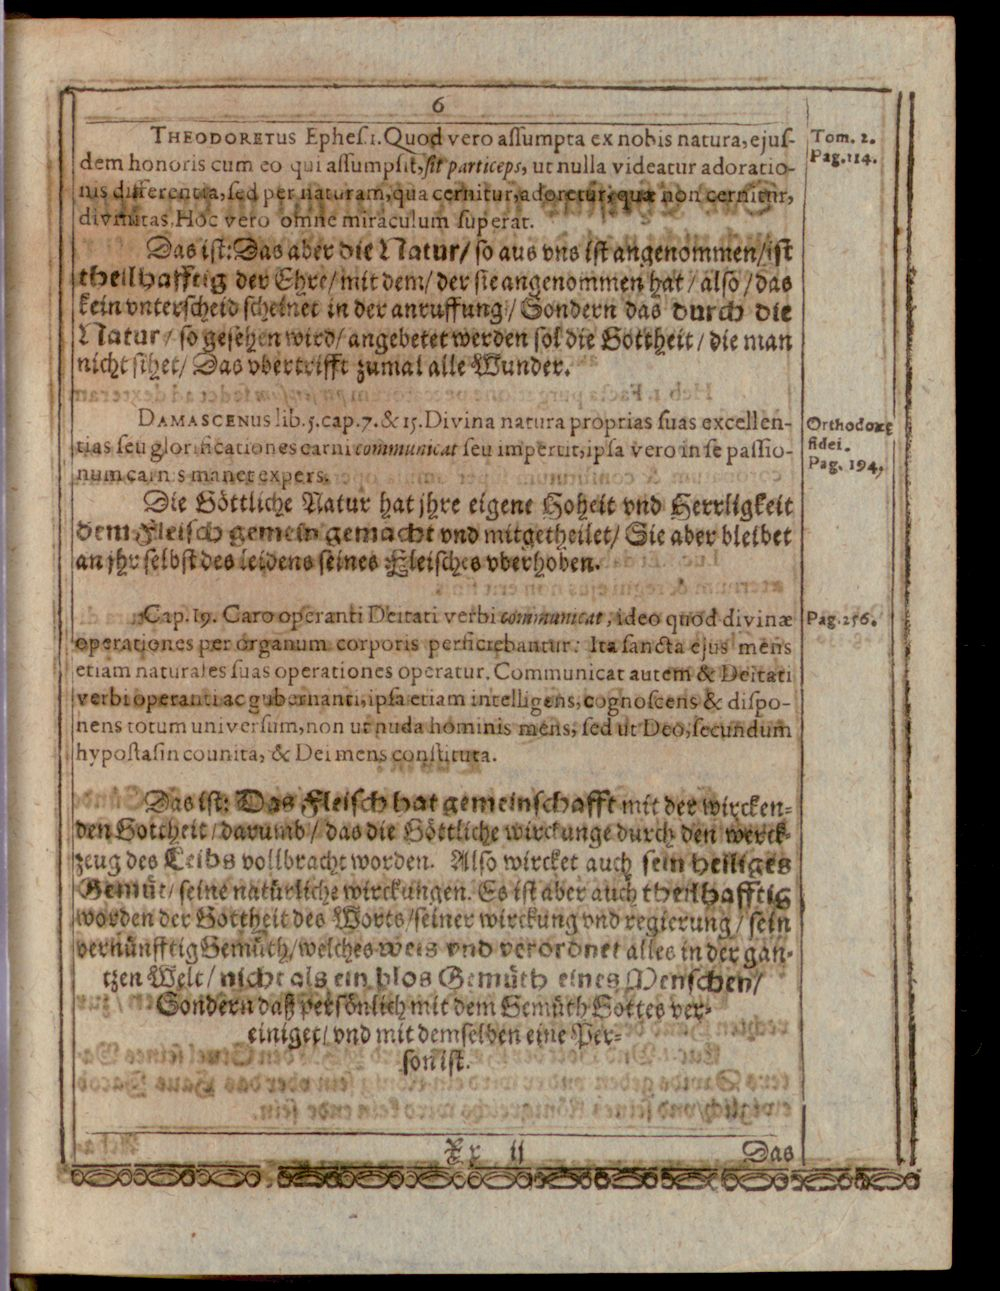 6
THEODORETUS Ephes. 1. Quod vero assumpta ex nobis natura, ejus-
dem honoris cum eo qui assumpsit, sit particeps, ut nulla videatur adoratio-
nis differentia, sed per naturam, qua cernitur, adoretur, quæ non cernitur,
divinitas. Hoc vero omne miraculum superat.
Tom. 2.
Pag. 114.
Das ist: Das aber die Natur/ so aus vns ist angenommen/ ist
theilhafftig der Ehre/ mit dem/ der sie angenommen hat/ also/ das
kein vnterscheid scheinet in der anruffung/ Sondern das durch die
Natur/ so gesehen wird/ angebetet werden sol die Gottheit/ die man
nicht sihet/ Das vbertrifft zumal alle Wunder.
DAMASCENUS lib. 3. cap. 7. & 15. Divina natura proprias suas excellen-
tias seu glorificationes carni communicat seu impertit, ipsa vero in se passio-
num carnis manet expers.
Orthodoxę
fidei.
Pag. 194,
Die Göttliche Natur hat jhre eigene Hoheit vnd Herrligkeit
dem Fleisch gemein gemacht vnd mitgetheilet/ Sie aber bleibet
an jhr selbst des leidens seines Fleisches vberhoben.
Cap. 19. Caro operanti Deitati verbi communicat, ideo quod divinæ
operationes per organum corporis perficiebantur: Ita sancta ejus mens
etiam naturales suas operationes operatur. Communicat autem & Deitati
verbi operanti ac gubernanti, ipsa etiam intelligens, cognoscens & dispo-
nens totum universum, non ut nuda hominis mens, sed ut Deo, secundum
hypostasin counita, & Dei mens constituta.
Pag. 256.
Das ist: Das Fleisch hat gemeinschafft mit der wircken-
den Gottheit/ darumb/ das die Göttliche wirckunge durch den werck-
zeug des Leibs vollbracht worden. Also wircket auch sein heiliges
Gemüt/ seine natürliche wirckungen. Es ist aber auch theilhafftig
worden der Gottheit des Worts/ seiner wirckung vnd regierung/ sein
vernünfftig Gemüth/ welches weis vnd verordnet alles in der gan-
tzen Welt/ nicht als ein blos Gemüth eines Menschen/
Sondern daß persönlich mit dem Gemüth Gottes ver-
einiget/ vnd mit demselben eine Per-
son ist.
Xx ij
Das